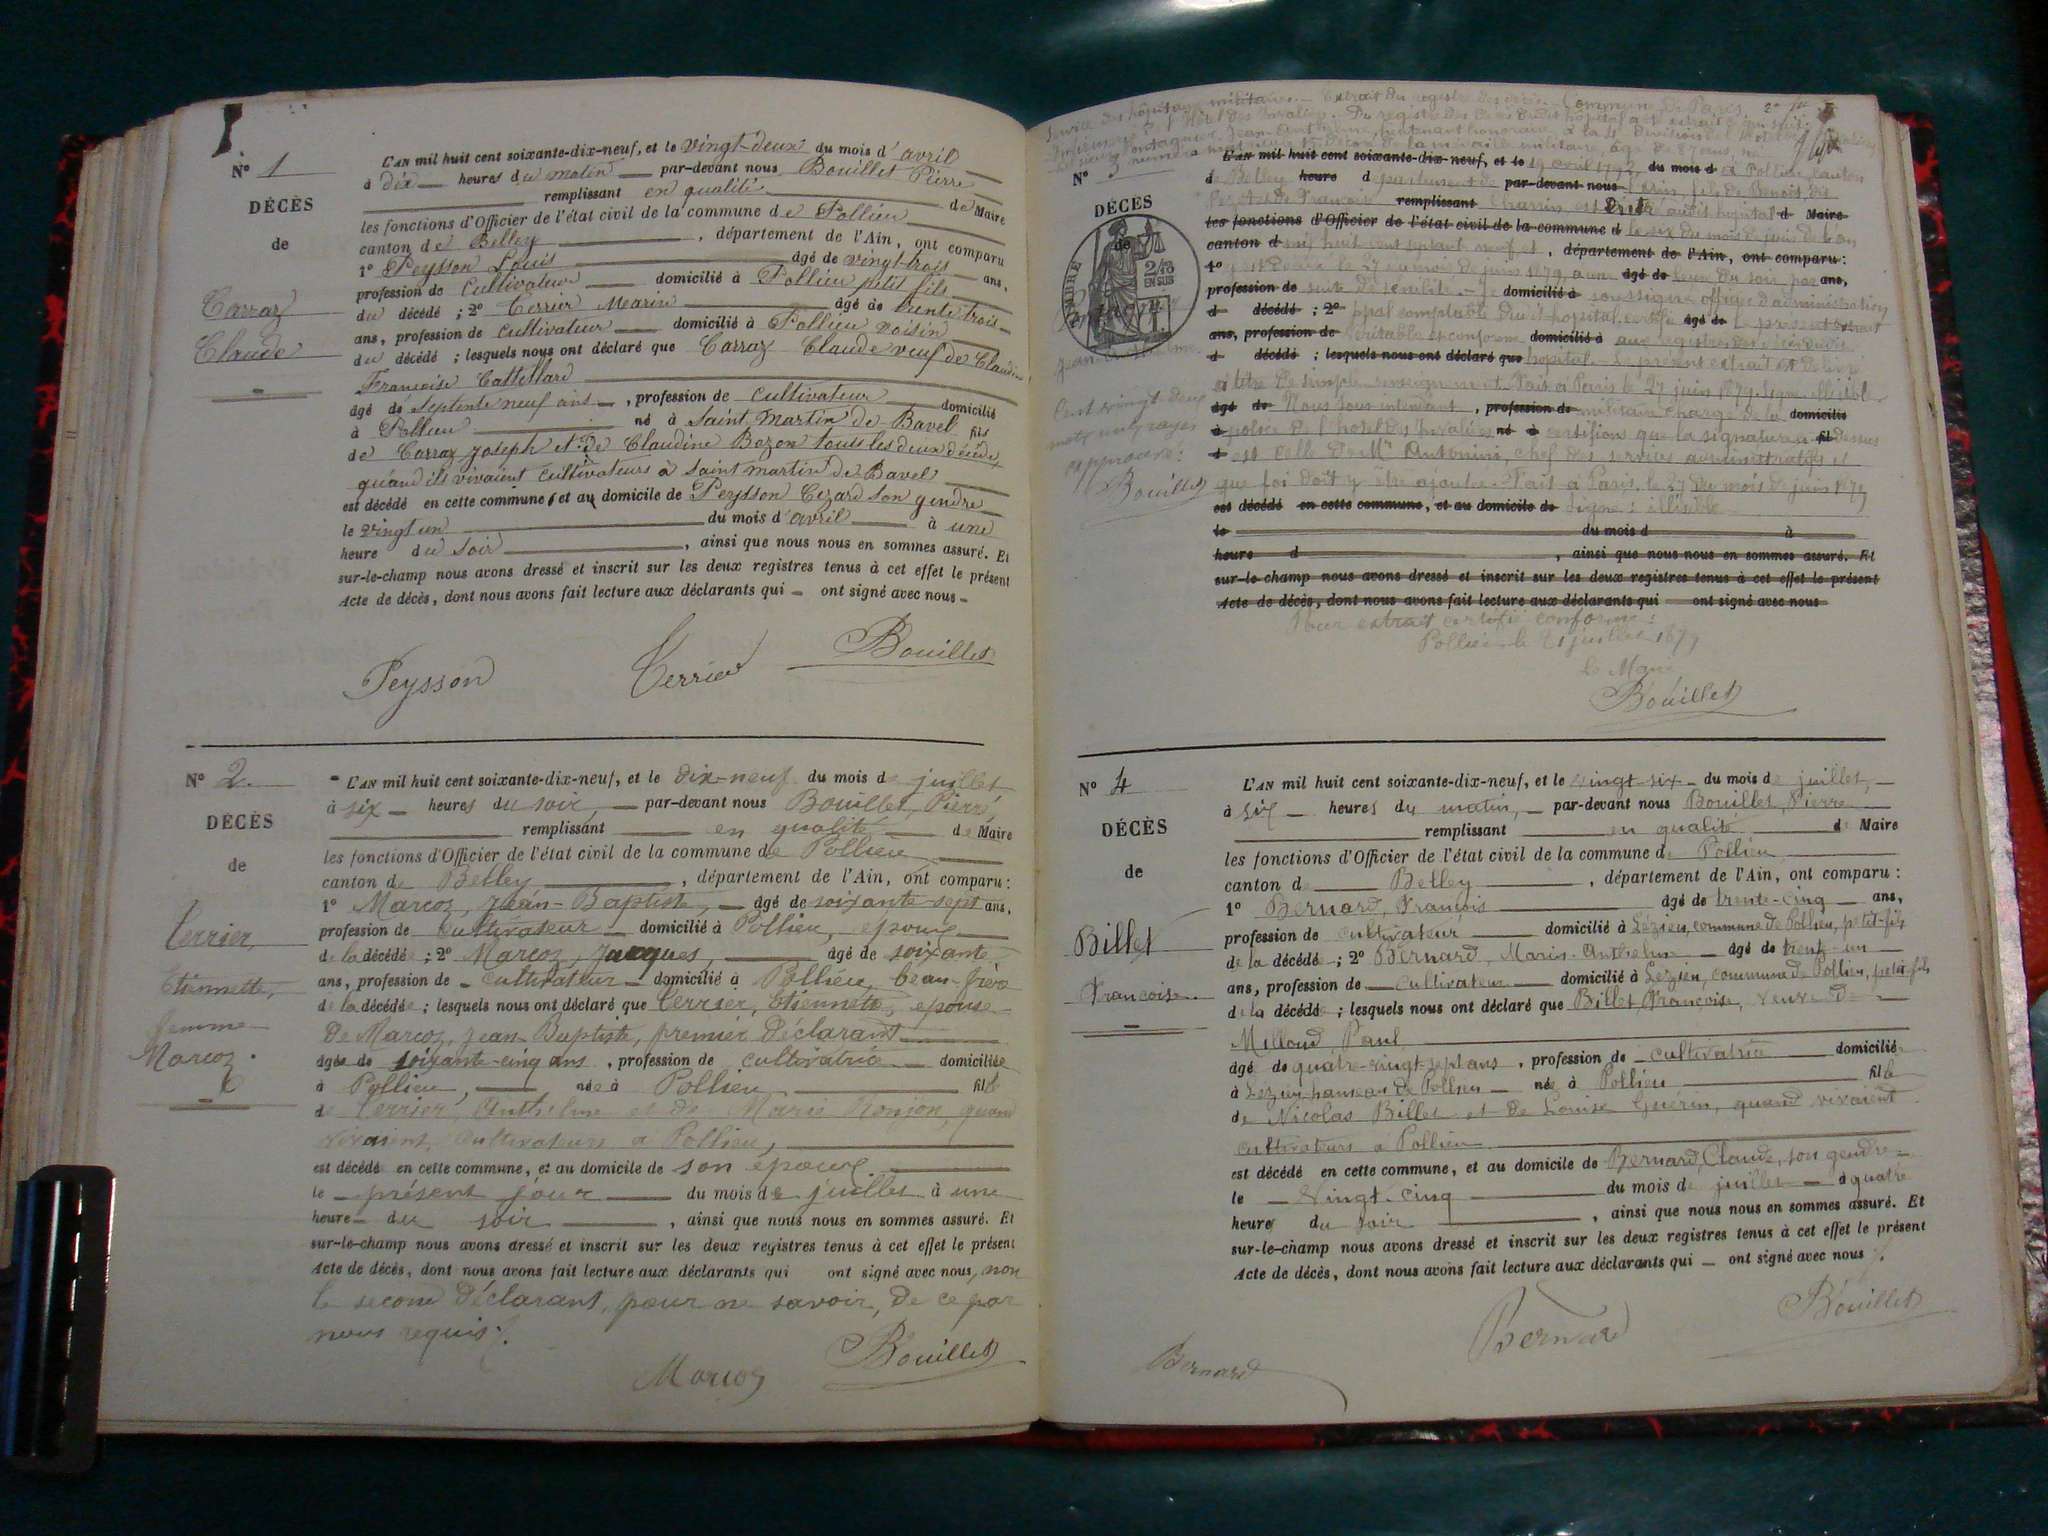 N° 1
DÉCÈS
de
Carraz
Claude
L'AN mil huit cent soixante-dix-neuf, et le vingt-deux du mois d'avril
à dix heures du matin par-devant nous Bouillet Pierre
remplissant en qualité de Maire
les fonctions d'Officier de l'état civil de la commune de Pollieu
canton de Belley, département de l'Ain, ont comparu
1° Peysson Louis âgé de vingt-trois ans,
profession de cultivateur domicilié à Pollieu petit fils
du décédé ; 2° Terrier Marin âgé de trente trois
ans, profession de cultivateur domicilié à Pollieu voisin
du décédé ; lesquels nous ont déclaré que Carraz Claude veuf de Claudine
Françoise
âgé de septente neuf ans, profession de cultivateur domicilié
à Pollieu né à Saint Martin de Bavel fils
de Carraz Joseph et de Claudine Bozon tous les deux décédés
quand ils vivaient cultivateurs à Saint martin de Bavel
est décédé en cette commune, et au domicile de Peysson Cezard son gendre
le vingt un du mois d'avril à une
heure du soir, ainsi que nous nous en sommes assuré. Et
sur-le-champ nous avons dressé et inscrit sur les deux registres tenus à cet effet le présent
Acte de décès, dont nous avons fait lecture aux déclarants qui ont signé avec nous
Peysson Terrier Bouillet
N° 2
DÉCÈS
de
Terrier,
Etiennette,
femme
Marcoz.
L'AN mil huit cent soixante-dix-neuf, et le dix-neuf du mois de juillet
à six heures du soir, par-devant nous Bouillet, Pierre,
remplissant en qualité de Maire
les fonctions d'Officier de l'état civil de la commune de Pollieu
canton de Belley, département de l'Ain, ont comparu :
1° Marcoz, Jean-Baptiste, âgé de soixante-sept ans,
profession de cultivateur domicilié à Pollieu, époux
de la décédée ; 2° Marcoz, Jacques, âgé de soixante
ans, profession de cultivateur domicilié à Pollieu, beau-frère
de la décédée ; lesquels nous ont déclaré que Terrier, Etiennette, épouse
de Marcoz, Jean-Baptiste, premier déclarant
âgée de soixante-cinq ans, profession de cultivatrice domiciliée
à Pollieu, née à Pollieu fille
de Terrier, Anthelme et de Marie Ronjon, quand
vivaient, cultivateurs à Pollieu,
est décédé en cette commune, et au domicile de son époux
le présent jour du mois de juillet à une
heure du soir, ainsi que nous nous en sommes assuré. Et
sur-le-champ nous avons dressé et inscrit sur les deux registres tenus à cet effet le présent
Acte de décès, dont nous avons fait lecture aux déclarants qui ont signé avec nous, non
le second déclarant, pour ne savoir, de ce par
nous requis.
Marcoz Bouillet
Service des hôpitaux militaires. Extrait du registre des décès. Commune de Paris
N° 3
DÉCÈS
de
TIMBRE
2/10
EN SUS
Jean-Anthelme
Cent vingt deux
mots rayés
approuvé :
Bouillet
L'AN mil huit cent soixante-dix-neuf, et le 19 avril 1792 du mois d à Pollieu, canton
de Belley heure département de par-devant nous l'Ain, fils de Benoit
remplissant
les fonctions d'Officier de l'état civil de la commune d le six du mois de juin de l'an
canton d mil huit cent septante neuf et, département de l'Ain, ont comparu :
1° y est décédé le 27 du mois de juin 1879 âgé de ans,
profession de suite de sénilité. domicilié à soussigné officier d'administration
d décédé ; 2° comptable dudit hôpital certifie âgé de le présent extrait
ans, profession de véritable et conforme domicilié à aux registres
d décédé ; lesquels nous ont déclaré que hôpital. Le présent extrait
à titre de simple renseignement. Fait à Paris le 27 juin 1879. Signé illisible
âgé de Nous sous intendant, profession de militaire chargé de la domicilié
à police de l'hôtel des Invalides né à certifions que la signature fil dessus
d est celle de Mr Antonini, chef des services administratifs et
que foi doit y être ajoutée. Fait à Paris, le 27 du mois de juin 1879
est décédé en cette commune, et au domicile de Signé : illisible
le du mois d à
heure d, ainsi que nous nous en sommes assuré. Et
sur-le-champ nous avons dressé et inscrit sur les deux registres tenus à cet effet le présent
Acte de décès, dont nous avons fait lecture aux déclarants qui ont signé avec nous
Pour extrait certifié conforme :
Pollieu le 21 juillet 1879
Le Maire
Bouillet
N° 4
DÉCÈS
de
Billet
Françoise
L'AN mil huit cent soixante-dix-neuf, et le vingt-six du mois de juillet,
à six heures du matin, par-devant nous Bouillet, Pierre
remplissant en qualité de Maire
les fonctions d'Officier de l'état civil de la commune de Pollieu
canton de Belley, département de l'Ain, ont comparu :
1° Bernard, François âgé de trente-cinq ans,
profession de cultivateur domicilié à Lézieu, commune de Pollieu, petit-fils
de la décédée ; 2° Bernard, Marin-Anthelme âgé de trente-un
ans, profession de cultivateur domicilié à Lézieu, commune de Pollieu, petit-fils
de la décédée ; lesquels nous ont déclaré que Billet, Françoise, veuve de
Milloud Paul
âgé de quatre-vingt-sept ans, profession de cultivatrice domiciliée
à Lézieu hameau de Pollieu née à Pollieu fille
de Nicolas Billet et de Louise Guérin, quand vivaient
cultivateurs à Pollieu
est décédé en cette commune, et au domicile de Bernard, Claude, son gendre
le vingt-cinq du mois de juillet à quatre
heures du soir, ainsi que nous nous en sommes assuré. Et
sur-le-champ nous avons dressé et inscrit sur les deux registres tenus à cet effet le présent
Acte de décès, dont nous avons fait lecture aux déclarants qui ont signé avec nous
Bernard Bernard Bouillet